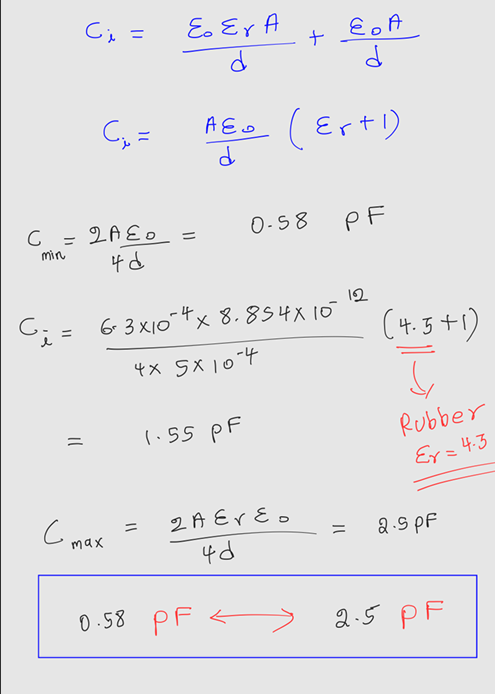 Ci = ε₀ εr A / d + ε₀ A / d
Ci = A ε₀ / d ( εr + 1)
C min = 2 A ε₀ / 4d = 0.58 pF
Ci = 6.3×10⁻⁴ × 8.854×10⁻¹² / 4× 5×10⁻⁴ (4.5+1)
Rubber
εr = 4.3
= 1.55 pF
C max = 2 A εr ε₀ / 4d = 2.5 pF
0.58 pF ↔ 2.5 pF